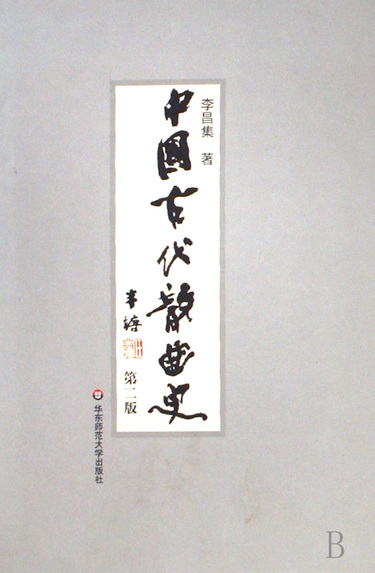 李昌集 著
中國古代散曲史
第二版
华东师范大学出版社
B